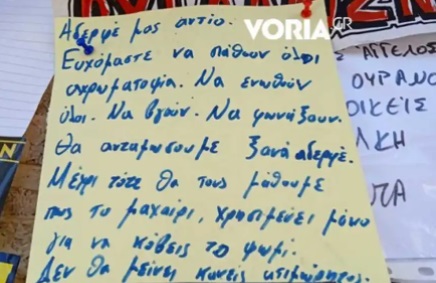 VORIA.GR
Αδερφέ μας αντίο.
Ευχόμαστε να πάθουν όλοι
αχρωματοψία. Να ενωθούν
όλοι. Να βγούν. Να φωνάξουν.
Θα ανταμώσουμε ξανά αδερφέ.
Μέχρι τότε θα τους μάθουμε
πως το μαχαίρι, χρησιμεύει μόνο
για να κόβεις το ψωμί.
Δεν θα μείνει κανείς ατιμώρητος.
ΑΓΓΕΛΟΣ
ΟΥΡΑΝΟ
ΟΙΚΕΙΣ